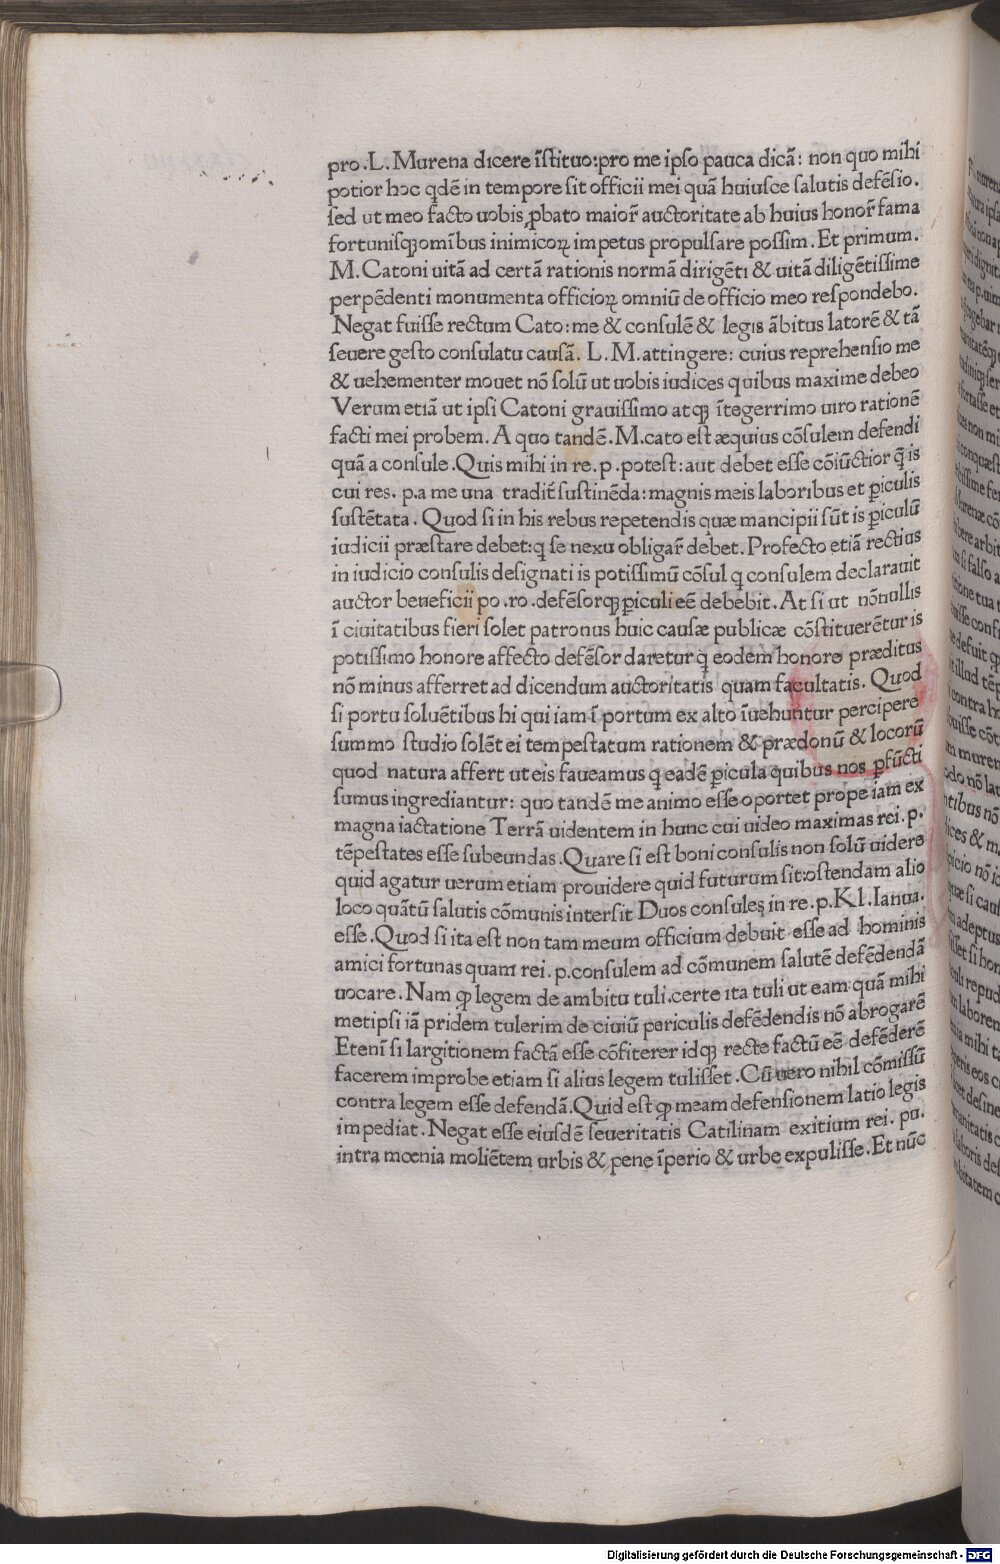 pro .L. Murena dicere ĩſtituo:pro me ipſo pauca dicã: non quo mihi
potior hoc qdẽ in tempore ſit officii mei quã huiuſce ſalutis defẽſio.
ſed ut meo facto uobis ꝓbato maior̃ auctoritate ab huius honor̃ fama
fortuniſqꝫ omĩbus inimicoꝝ impetus propulſare poſſim. Et primum.
M. Catoni uitã ad certã rationis normã dirigẽti & uitã diligẽtiſſime
perpẽdenti monumenta officioꝝ omniũ de officio meo reſpondebo.
Negat fuiſſe rectum Cato: me & conſulẽ & legis ãbitus latorẽ & tã
ſeuere geſto conſulatu cauſã. L. M. attingere: cuius reprehenſio me
& uehementer mouet nõ ſolũ ut uobis iudices quibus maxime debeo
Verum etiã ut ipſi Catoni grauiſſimo atqꝫ ĩtegerrimo uiro rationẽ
facti mei probem. A quo tandẽ. M.cato eſt æquius cõſulem defendi
quã a conſule .Quis mihi in re. p .poteſt: aut debet eſſe cõiũctior q̃ is
cui res. p.a me una tradit̃ ſuſtinẽda: magnis meis laboribus et ꝑiculis
ſuſtẽtata. Quod ſi in his rebus repetendis quæ mancipii ſũt is ꝑiculũ
iudicii præſtare debet: q ſe nexu obligar̃ debet. Profecto etiã rectius
in iudicio conſulis deſignati is potiſſimũ cõſul q conſulem declarauit
auctor beneficii po. ro. defẽſorqꝫ ꝑiculi eẽ debebit. At ſi ut nõnullis
ĩ ciuitatibus fieri ſolet patronus huic cauſæ publicæ cõſtituerẽtur is
potiſſimo honore affecto defẽſor daretur q̃ eodem honore præditus
nõ minus afferret ad dicendum auctoritatis quam facultatis. Quod
ſi portu ſoluẽtibus hi qui iam ĩ portum ex alto ĩuehuntur percipere
ſummo ſtudio ſolẽt ei tempeſtatum rationem & prædonũ & locorũ
quod natura affert ut eis faueamus q̃ eadẽ ꝑicula quibus nos ꝑfũcti
ſumus ingrediantur: quo tandẽ me animo eſſe oportet prope iam ex
magna iactatione Terrã uidentem in hunc cui uideo maximas rei. p.
tẽpeſtates eſſe ſubeundas .Quare ſi eſt boni conſulis non ſolũ uidere
quid agatur uerum etiam prouidere quid futurum ſit:oſtendam alio
loco quãtũ ſalutis cõmunis interſit Duos conſules in re. p. Kl. Ianua.
eſſe .Quod ſi ita eſt non tam meum officium debuit eſſe ad hominis
amici fortunas quam rei. p.conſulem ad cõmunem ſalutẽ defẽdendã
uocare. Nam qꝫ legem de ambitu tuli.certe ita tuli ut eam: quã mihi
metipſi iã pridem tulerim de ciuiũ periculis defẽdendis nõ abrogarẽ
Etenĩ ſi largitionem factã eſſe cõfiterer idqꝫ recte factũ eẽ defẽderẽ
facerem improbe etiam ſi alius legem tuliſſet .Cũ uero nihil cõmiſſũ
contra legem eſſe defendã. Quid eſt qꝫ meam defenſionem latio legis
impediat. Negat eſſe eiuſdẽ ſeueritatis Catilinam exitium rei. pu.
intra mœnia moliẽtem urbis & penę ĩperio & urbe expuliſſe. Et nũc
Digitalisierung gefördert durch die Deutsche Forschungsgemeinschaft - DFG